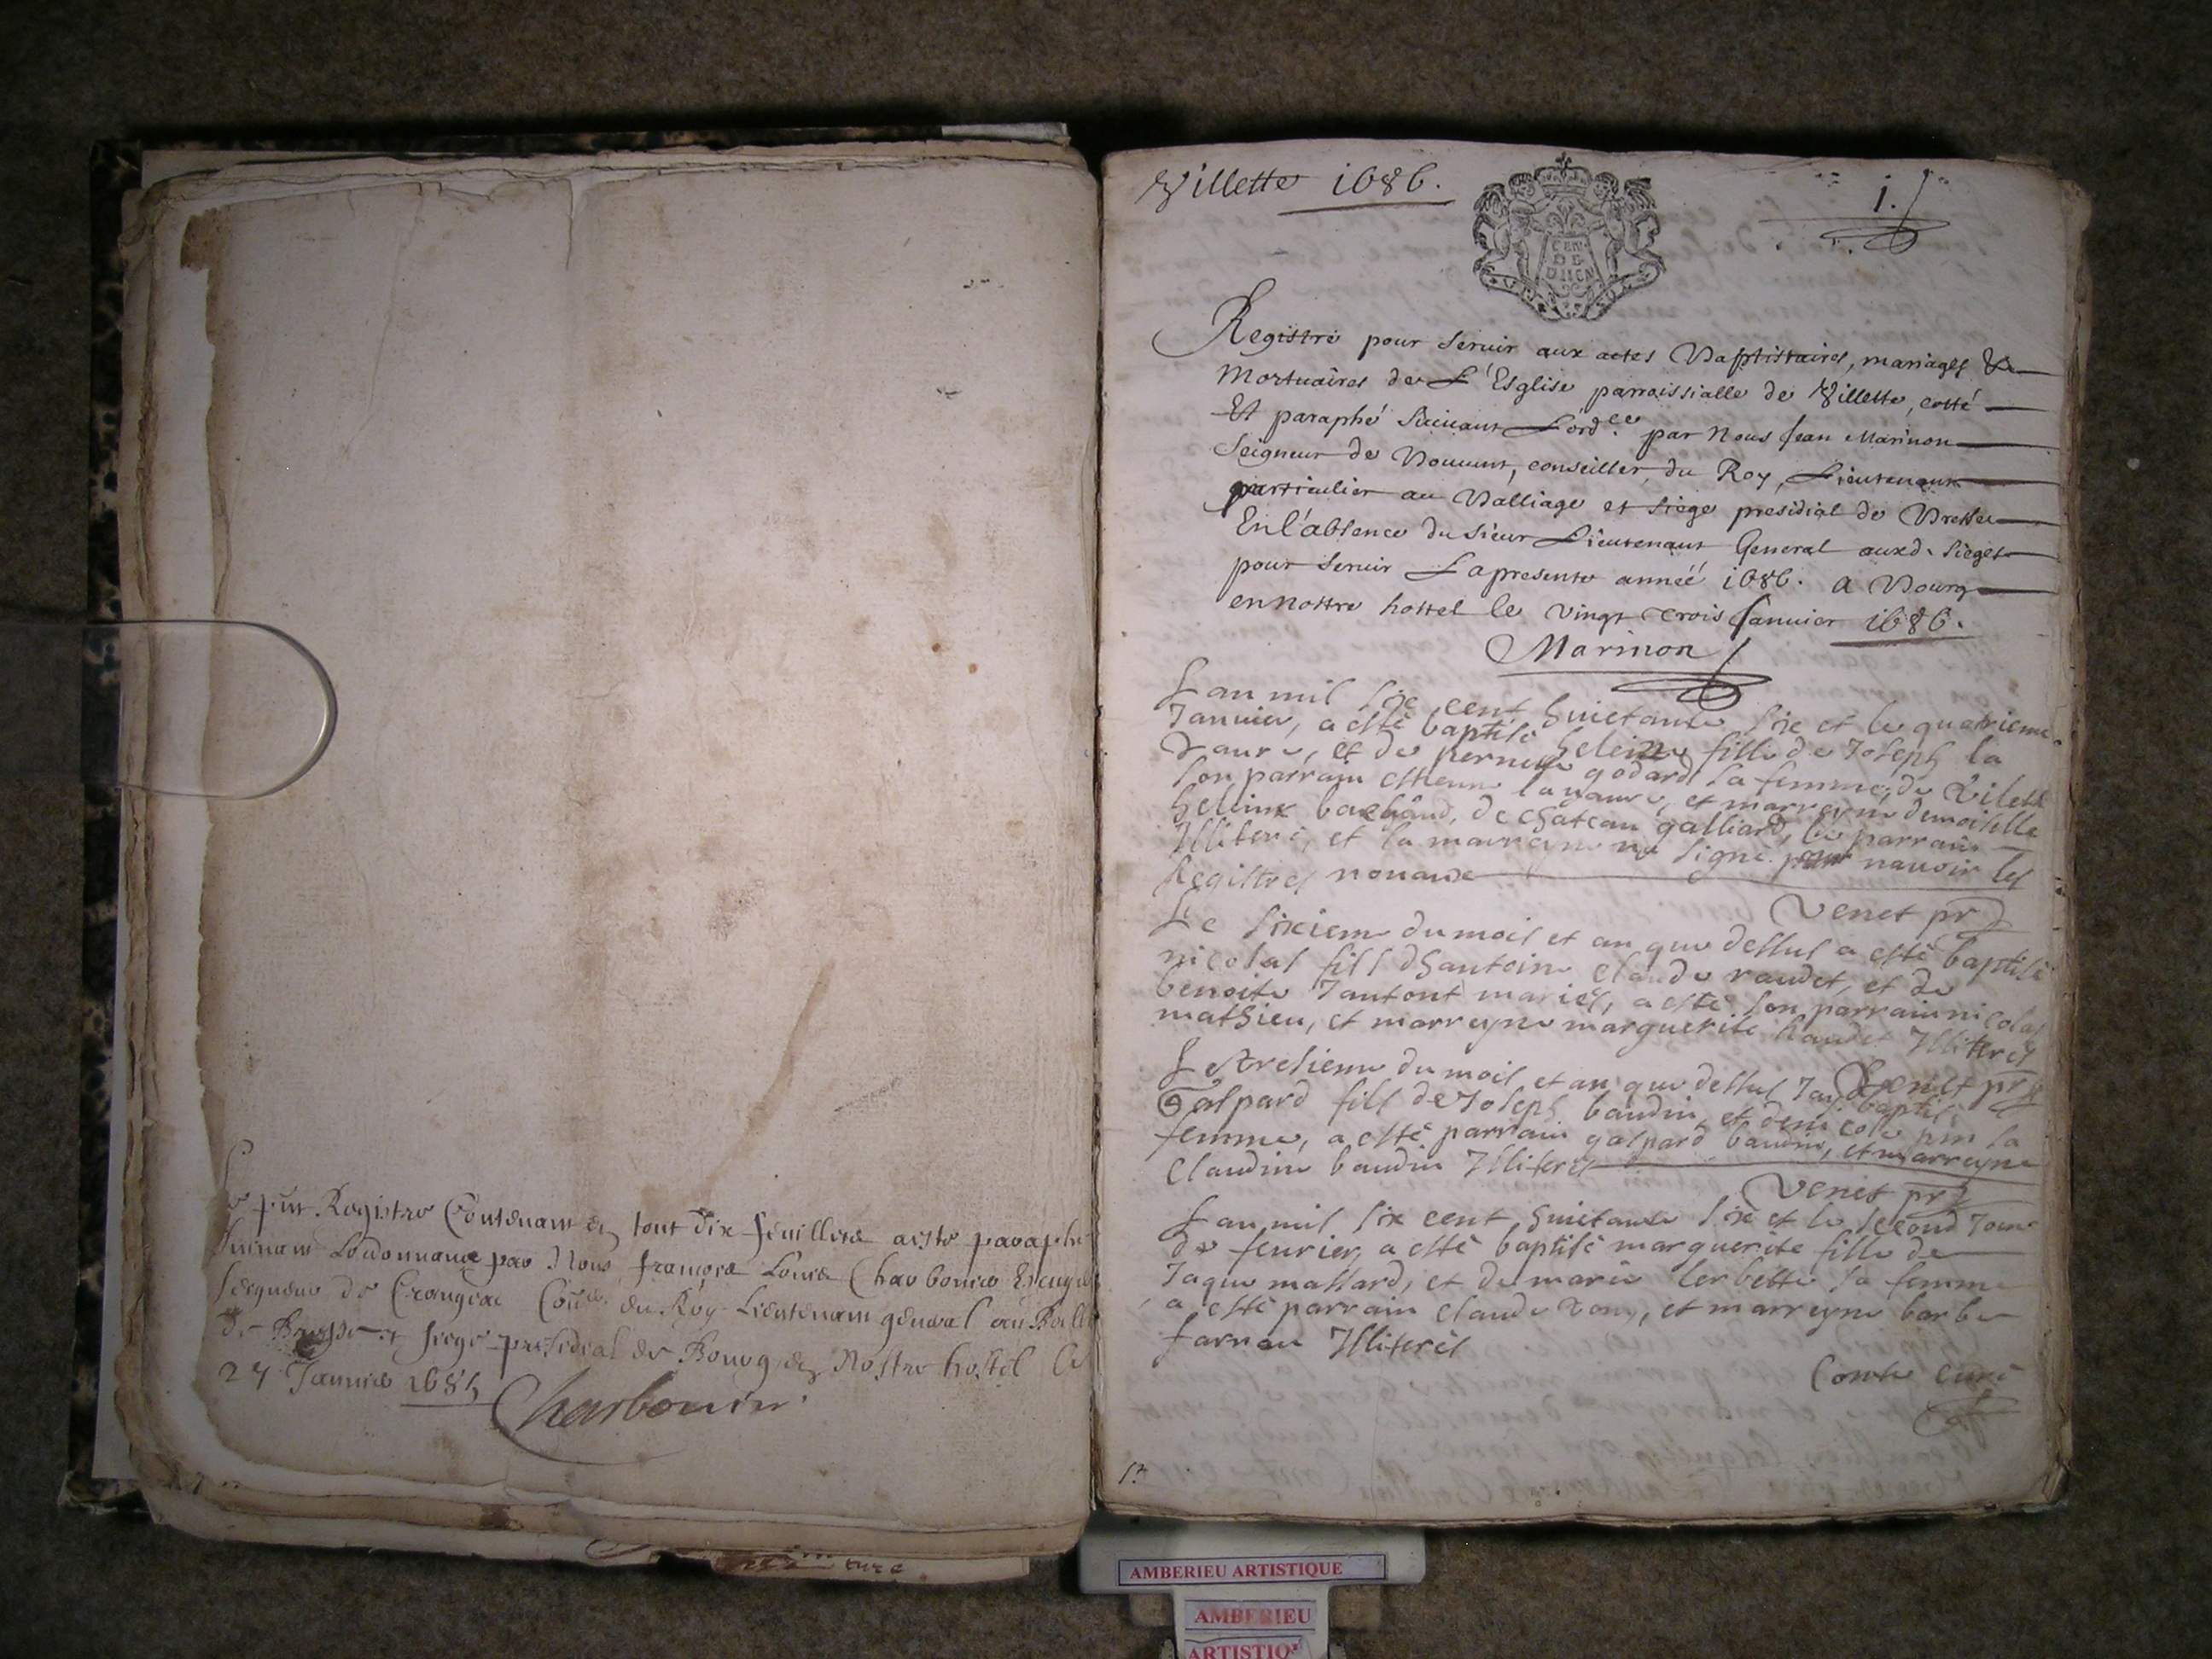 Le pnt Registre Contenant en tout dix feuillets a este paraphé
suivant Lordonnance par Nous françois Louis Charbonnier Escuyer
seigneur de Crangeac Coner du Roy Lieutenant general au Baill
de Bresse et siege presidial de Bourg en Nostre hostel le
27 Janvier 1685
Charbonnier
Villette 1686.
1.
GEN
DE
DIION
Registre pour seruir aux actes Baptistaires, mariages &
Mortuaires de L'Esglise parroissialle de Villette, cotté
Et paraphé suiuant L'ord.ce par Nous Jean Marinon
Seigneur de Bouuent, conseiller du Roy, Lieutenant
particulier au Balliage et siege presidial de Bresse
En l'absence du sieur Lieutenant General auxd. sieges
pour seruir La presente année 1686. A Bourg
en nostre hostel le vingt trois Januier 1686.
Marinon
L an mil six cent huictante six et le quatrieme
Januier, a esté baptisé heleine fille de Joseph la
vaure, et de pernette godard sa femme, de vilette
son parrain estienne la vaure, et marreyne demoiselle
helleine bachand, de chateau galliard, le parrain
Illiteré, et la marreyne na signé pour navoir les
Registres nouaux
Venet pr
Le sixieme du mois et an que dessus a esté baptisé
nicolas fils dhantoine claude raudet, et de
benoite Jantont mariés, a esté son parrain nicolas
mathieu, et marreyne marguerite Raudet Illiterés
Venet pr
Le treisieme du mois et an que dessus Jay baptisé
Gaspard fils de Joseph baudin, et de nicole pin sa
femme, a esté parrain gaspard baudin, et marreyne
claudine baudin Illiterés
Venet pr
L an mil six cent huictante six et le second Jour
de feurier, a esté baptisé marguerite fille de
Jaque massard, et de marie berbette sa femme
a esté parrain claude, et marreyne barbe
farnau Illiterés
Comte curé
17
curé
AMBERIEU ARTISTIQUE
AMBERIEU
ARTISTIQ